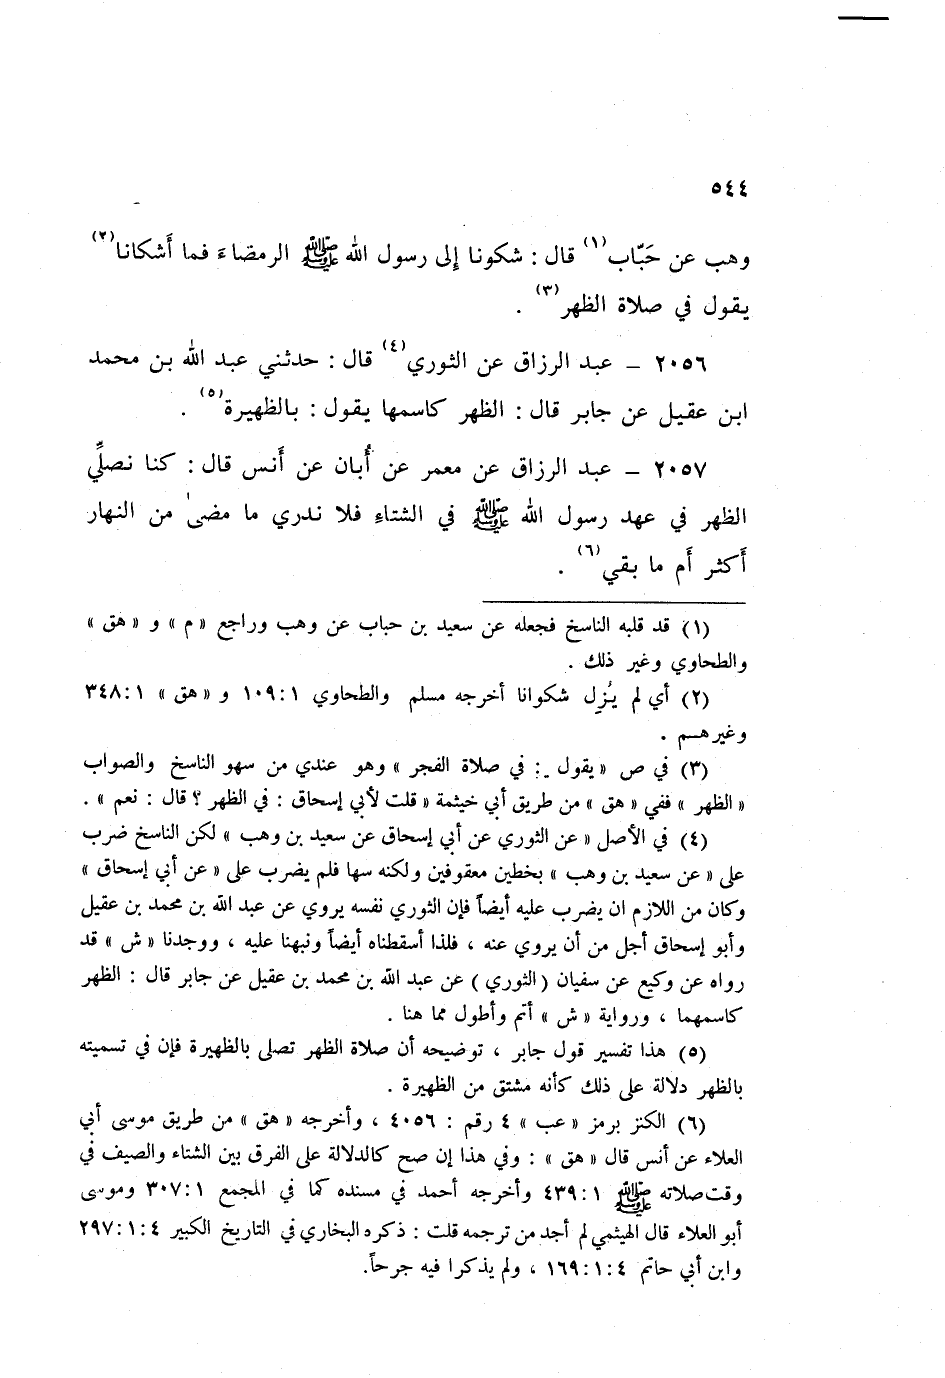 ٥٤٤
وهب عن حَبّاب(١) قال : شكونا إلى رسول الله ﷺ الرمضاءَ فما أَشكانا(٢)
يقول في صلاة الظهر(٣) .
٢٠٥٦ – عبد الرزاق عن الثوري(٤) قال : حدثني عبد الله بن محمد
ابن عقيل عن جابر قال : الظهر كاسمها يقول : بالظهيرة(٥) .
٢٠٥٧ – عبد الرزاق عن معمر عن أُبان عن أَنس قال : كنا نصلِّي
الظهر في عهد رسول الله ﷺ في الشتاءِ فلا ندري ما مضىٰ من النهار
أَكثر أَم ما بقي(٦) .
(١) قد قلبه الناسخ فجعله عن سعيد بن حباب عن وهب وراجع « م » و « هق »
والطحاوي وغير ذلك .
(٢) أي لم يُزل شكوانا أخرجه مسلم والطحاوي ١٠٩:١ و « هق » ٣٤٨:١
وغيرهم .
(٣) في ص « يقول : في صلاة الفجر » وهو عندي من سهو الناسخ والصواب
« الظهر » ففي « هق » من طريق أبي خيثمة « قلت لأبي إسحاق : في الظهر ؟ قال : نعم » .
(٤) في الأصل « عن الثوري عن أبي إسحاق عن سعيد بن وهب » لكن الناسخ ضرب
على « عن سعيد بن وهب » بخطين معقوفين ولكنه سها فلم يضرب على « عن أبي إسحاق »
وكان من اللازم ان يضرب عليه أيضاً فإن الثوري نفسه يروي عن عبد الله بن محمد بن عقيل
وأبو إسحاق أجل من أن يروي عنه ، فلذا أسقطناه أيضاً ونبهنا عليه ، ووجدنا « ش » قد
رواه عن وكيع عن سفيان (الثوري) عن عبد الله بن محمد بن عقيل عن جابر قال : الظهر
كاسمهما ، ورواية « ش » أتم وأطول مما هنا .
(٥) هذا تفسير قول جابر ، توضيحه أن صلاة الظهر تصلى بالظهيرة فإن في تسميته
بالظهر دلالة على ذلك كأنه مشتق من الظهيرة .
(٦) الكنز برمز « عب » ٤ رقم : ٤٠٥٦ ، وأخرجه « هق » من طريق موسى أبي
العلاء عن أنس قال « هق » : وفي هذا إن صح كالدلالة على الفرق بين الشتاء والصيف في
وقت صلاته ﷺ ٤٣٩:١ وأخرجه أحمد في مسنده كما في المجمع ٣٠٧:١ وموسى
أبو العلاء قال الهيثمي لم أجد من ترجمه قلت : ذكره البخاري في التاريخ الكبير ٢٩٧:١:٤
وابن أبي حاتم ١٦٩:١:٤ ، ولم يذكرا فيه جرحاً.